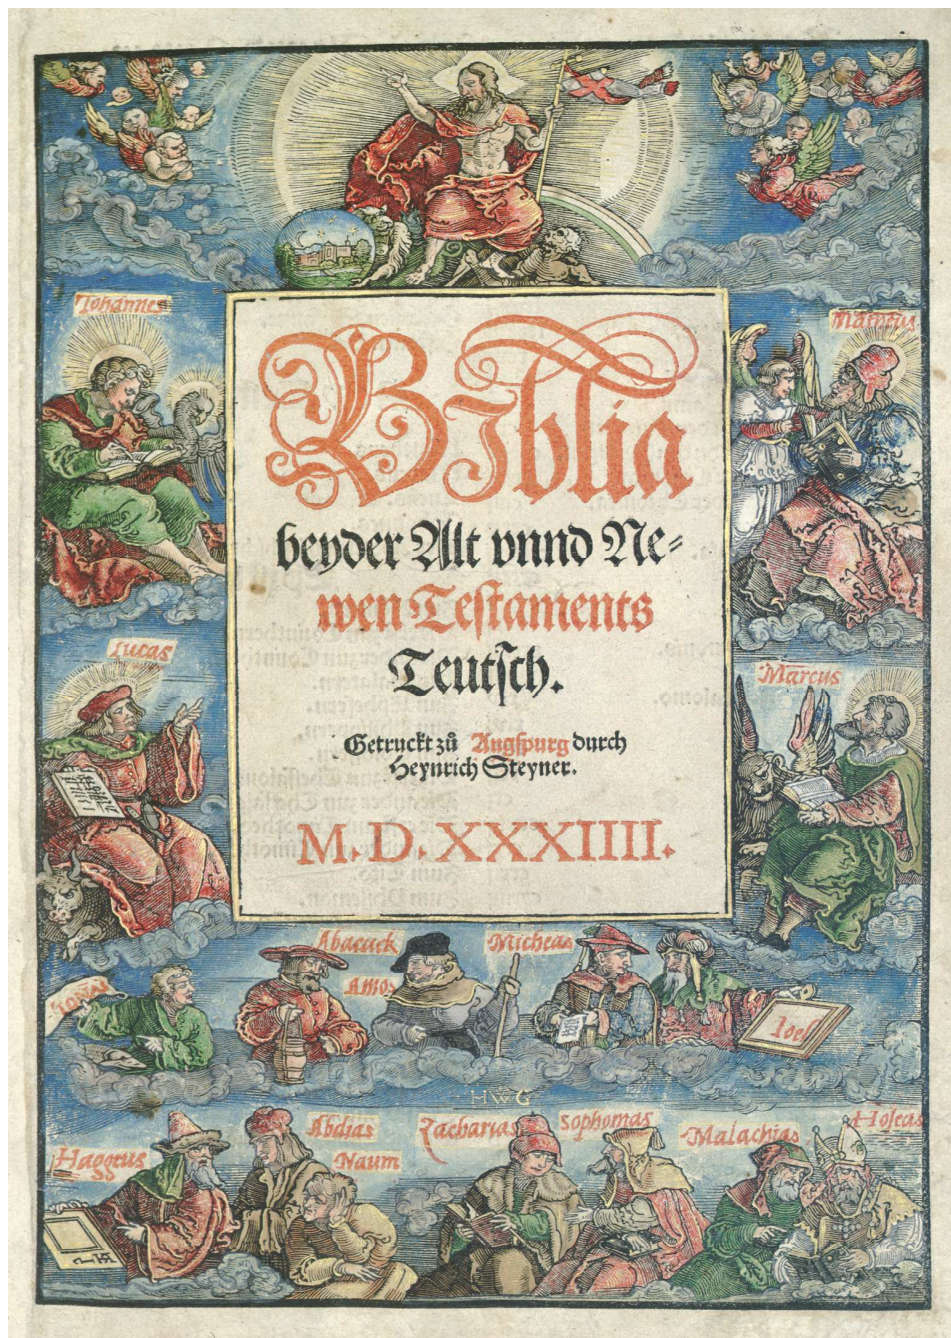 Johannes
Mattheus
Biblia
beyder Alt vnnd Ne⸗
wen Teſtaments
Teutſch.
Getruckt zů Augſpurg durch
Heynrich Steyner.
M. D. XXXIIII.
Lucas
Marcus
Abacuck
Micheas
Amos
Ionas
Ioel
HWG
Haggeus
Abdias
Naum
Zacharias
Sophonias
Malachias
Hoſeas